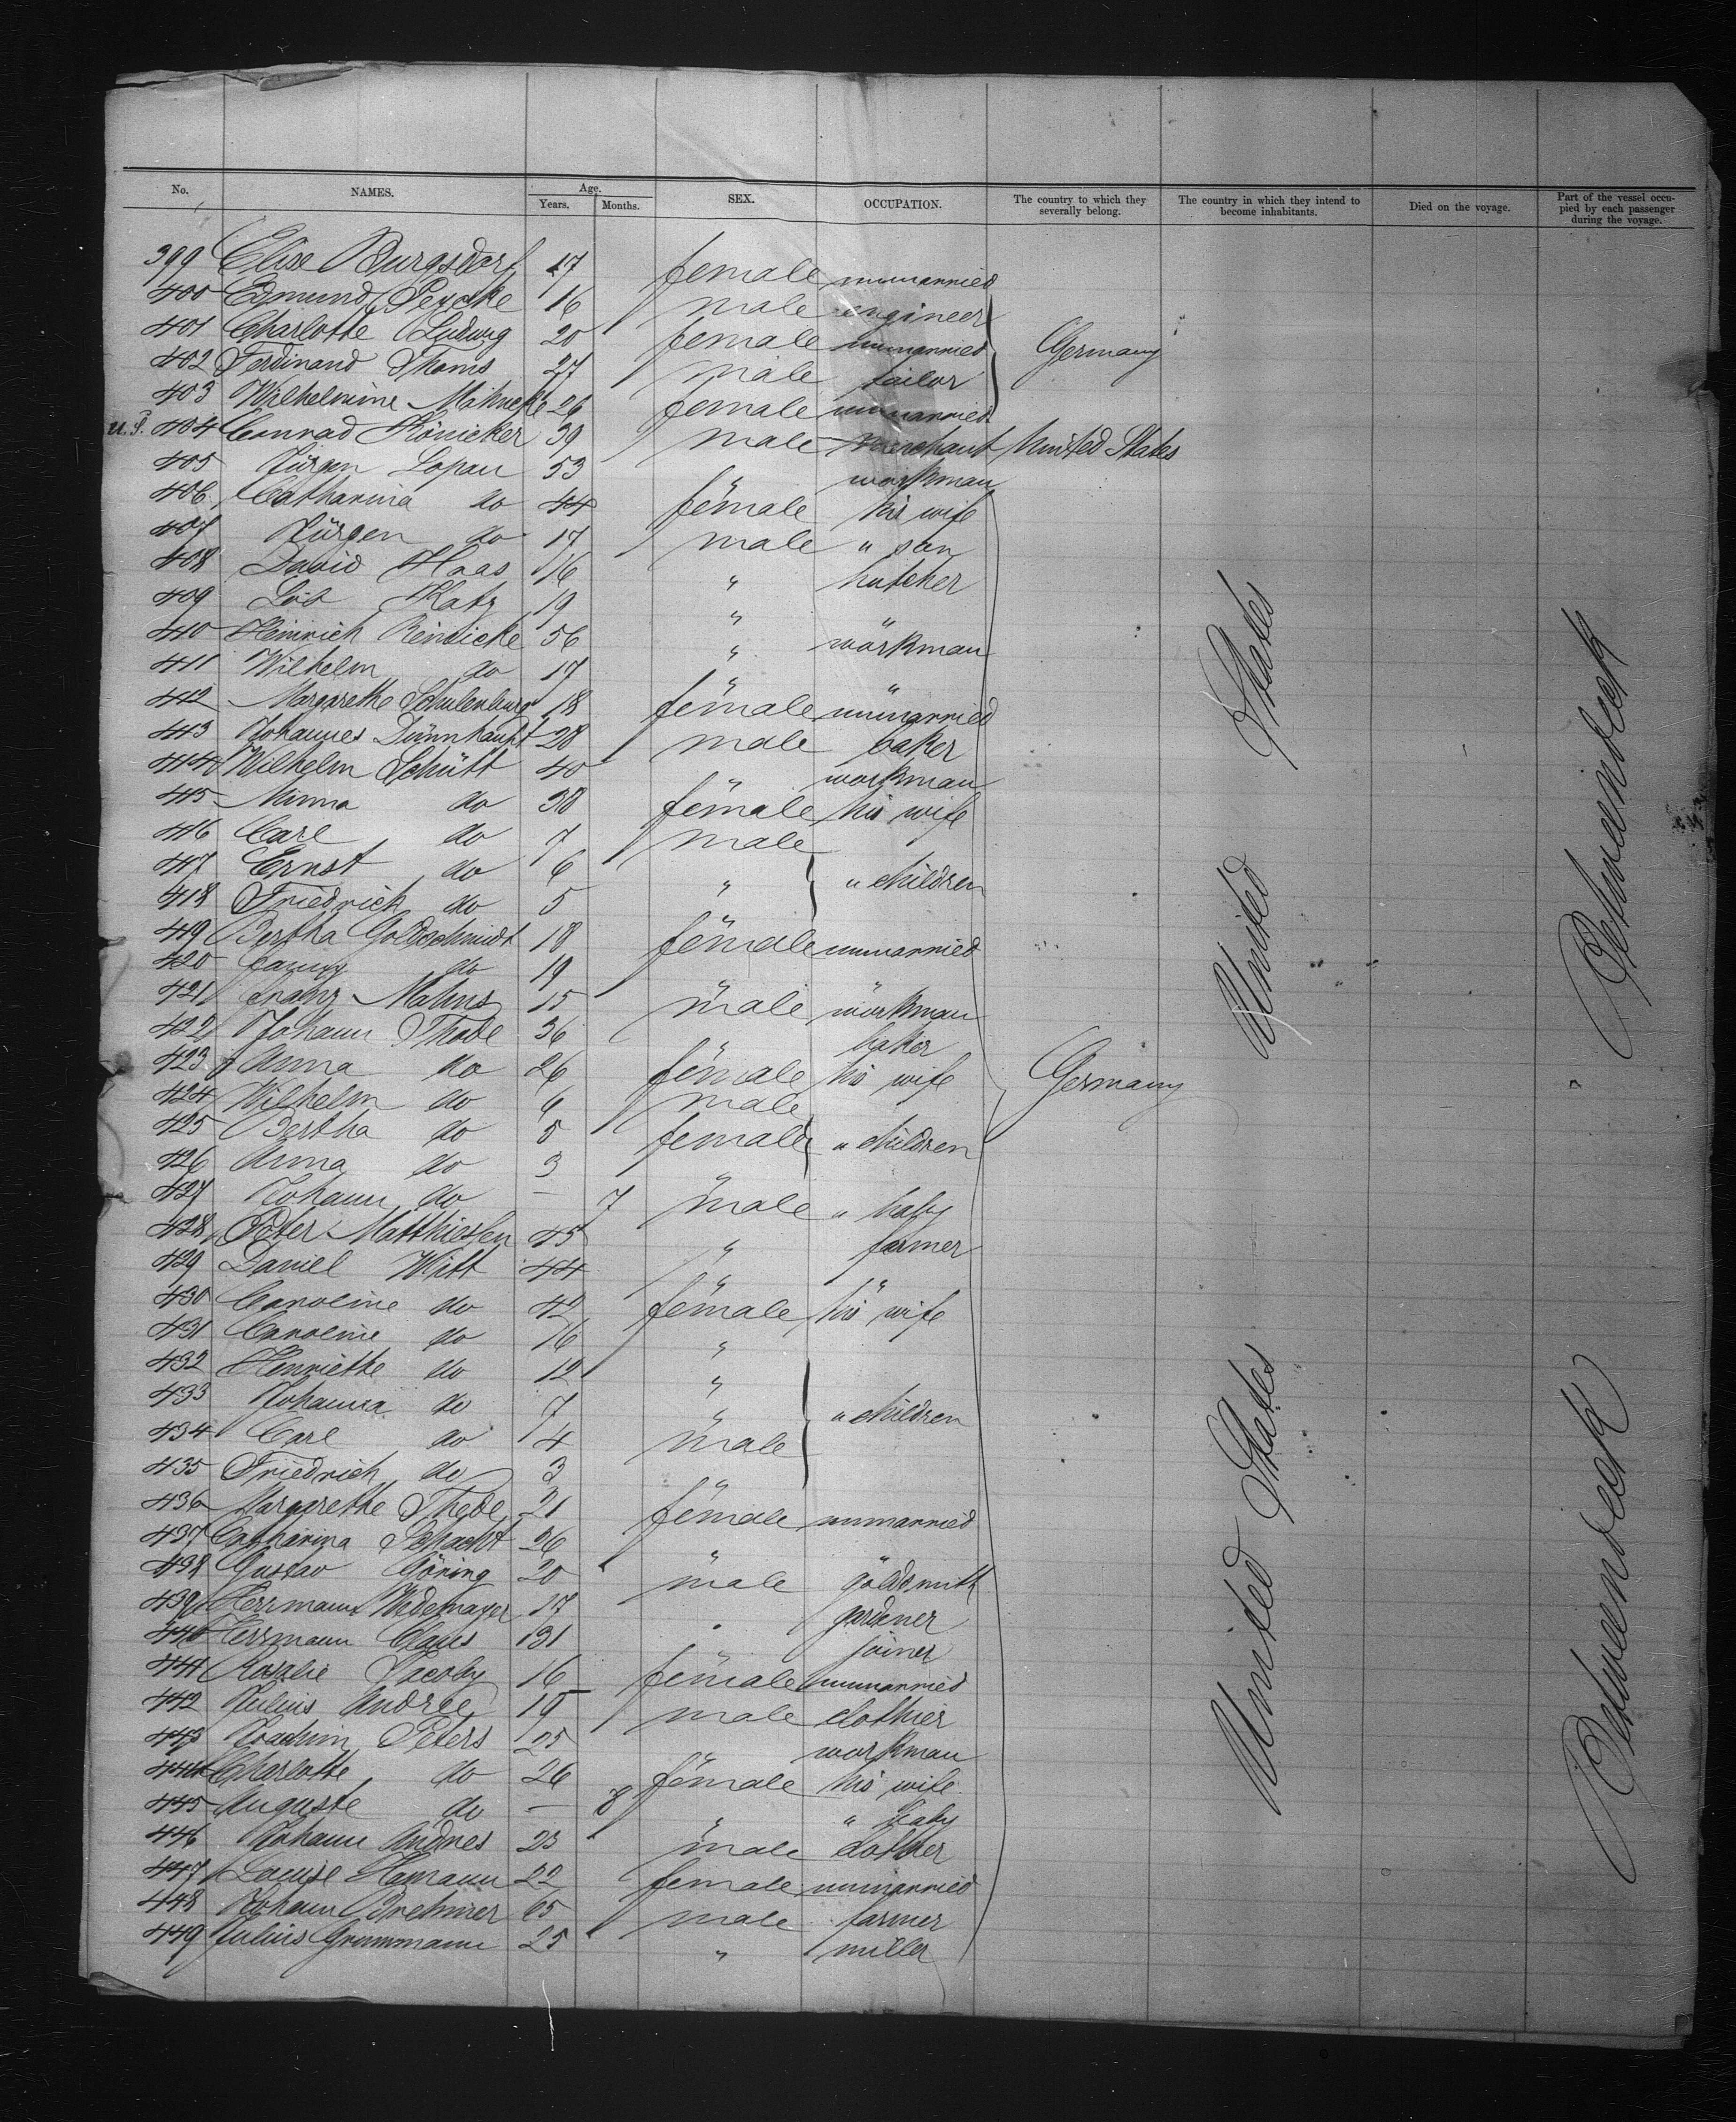 No. NAMES. Age. Years. Months. SEX. OCCUPATION. The country to which they severally belong. The country in which they intend to become inhabitants. Died on the voyage. Part of the vessel occupied by each passenger during the voyage.
399 Elise Burgsdorf 17 female unmarried
400 Edmund 16 male engineer
401 Charlotte Ludwig 20 female unmarried Germany
402 Ferdinand Thoms 27 male tailor
403 Wilhelmine Mahncke 26 female unmarried
U.S. 404 Conrad Könicker 39 male merchant United States
405 Jürgen Lopau 53 " workman
406 Catharina do 44 female his wife
407 Jürgen do 17 male " son
408 David Haas 16 " butcher
409 Löb Katz 19 " "
410 Heinrich Reinicke 56 " workman
411 Wilhelm do 17 " "
412 Margarethe Schulenburg 18 female unmarried
413 Johannes Dünnhaupt 28 male baker
414 Wilhelm Schütt 40 " workman
415 Minna do 38 female his wife
416 Carl do 7 male
417 Ernst do 6 " " children
418 Friedrich do 5 "
419 Bertha Goldschmidt 18 female unmarried
420 Fanny do 19 " "
421 Franz Mahns 15 male workman
422 Johann Thode 36 " baker
423 Anna do 26 female his wife Germany
424 Wilhelm do 6 male
425 Bertha do 5 female " children
426 Anna do 3 "
427 Johann do — 7 male " baby
428 Peter Matthiessen 45 " farmer
429 Daniel Witt 44 " "
430 Caroline do 42 female his wife
431 Caroline do 16 "
432 Henriette do 12 "
433 Johanna do 7 " " children
434 Carl do 4 male
435 Friedrich do 3 "
436 Margarethe Thede 21 female unmarried
437 Catharina Schacht 26 " "
438 Gustav Göring 20 male goldsmith
439 Herrmann Wedemayer 17 " gardener
440 Herrmann Claus 31 " joiner
441 Rosalie Jacoby 16 female unmarried
442 Julius Andree 19 male clothier
443 Joachim Peters 25 " workman
444 Charlotte do 26 female his wife
445 Auguste do — 8 " " baby
446 Johann Andres 23 male clothier
447 Louise Hamann 22 female unmarried
448 Johann 65 male farmer
449 Julius Grammann 25 " miller
United States
United States
Betweendeck
Betweendeck